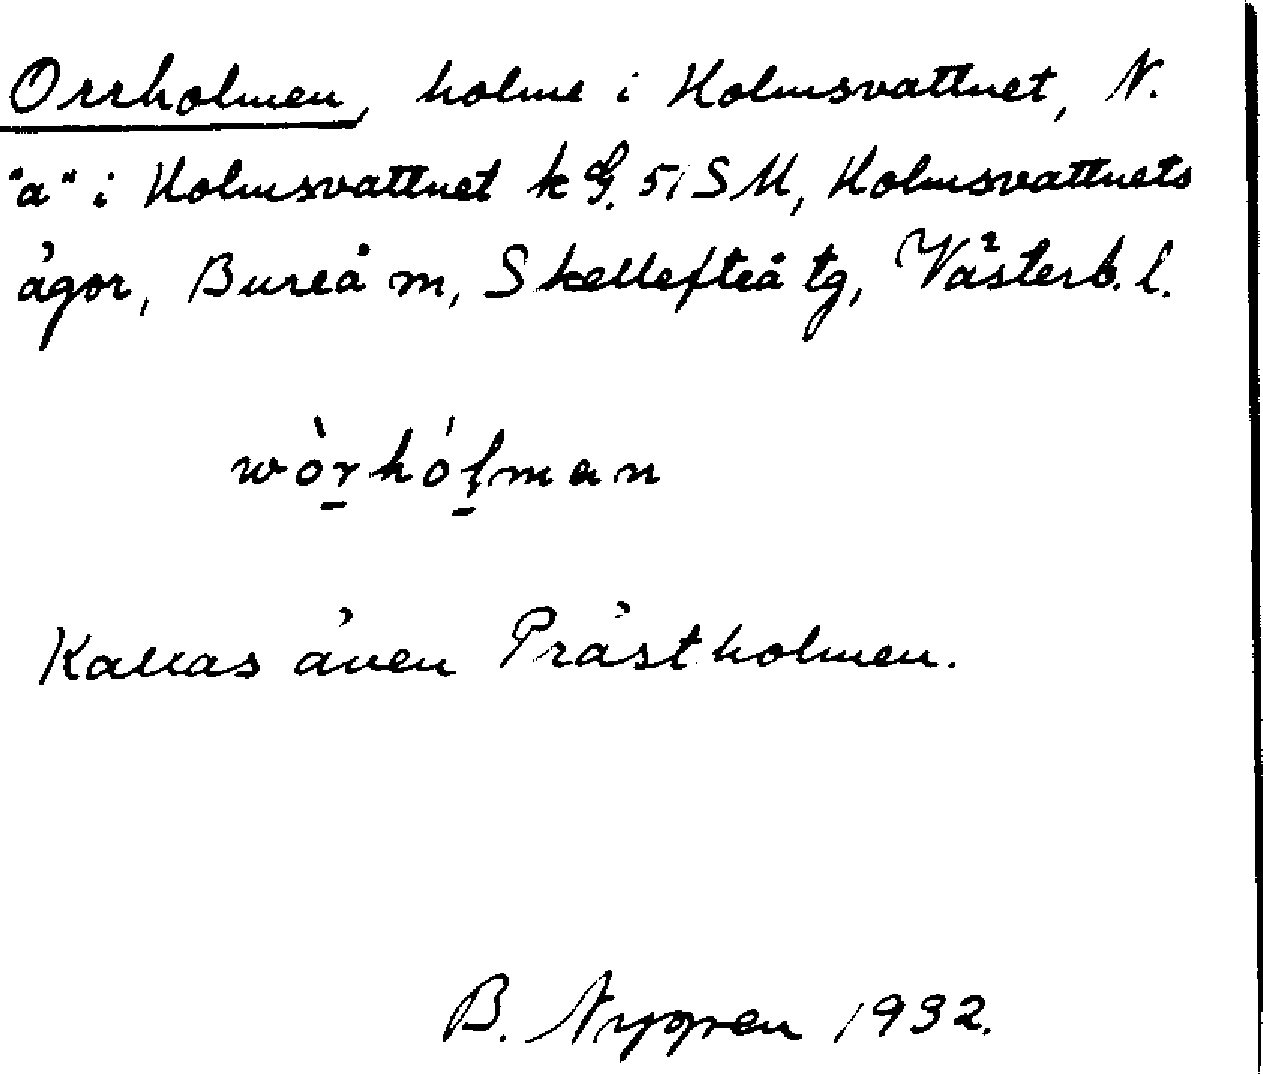 Orrholmen, holme i Holmsvattnet, N.
"a" i Holmsvattnet k G. 51 SM, Holmsvattnets
ägor, Bureå m, Skellefteå tg, Västerb. l.
wòrhólman
Kallas även Prästholmen.
B. Nygren 1932.